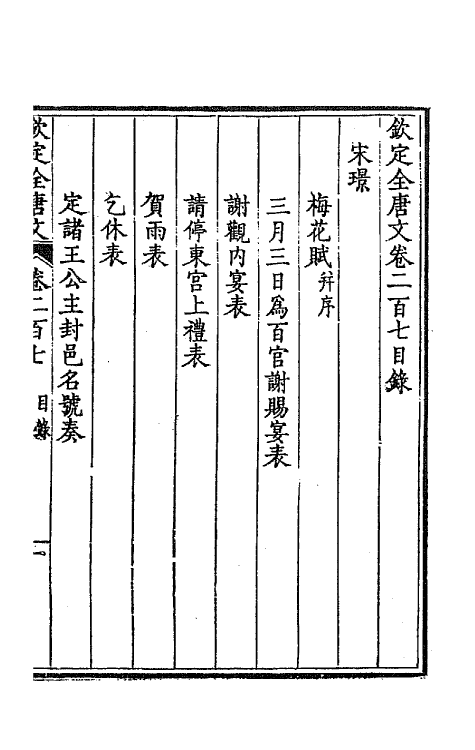 欽定全唐文卷二百七目錄
宋璟
梅花賦 并序
三月三日為百官謝賜宴表
謝觀內宴表
請停東宮上禮表
賀雨表
乞休表
定諸王公主封邑名號奏
欽定全唐文 卷二百七 目錄 一